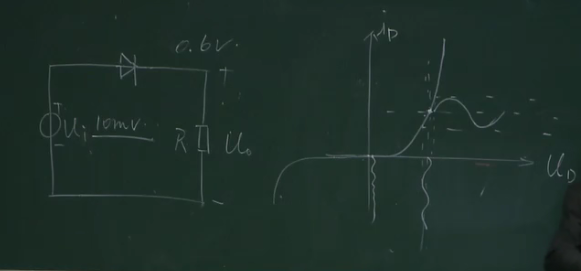 0.6V.
+
Ui 10mV
-
R
Uo
-
iD
UD